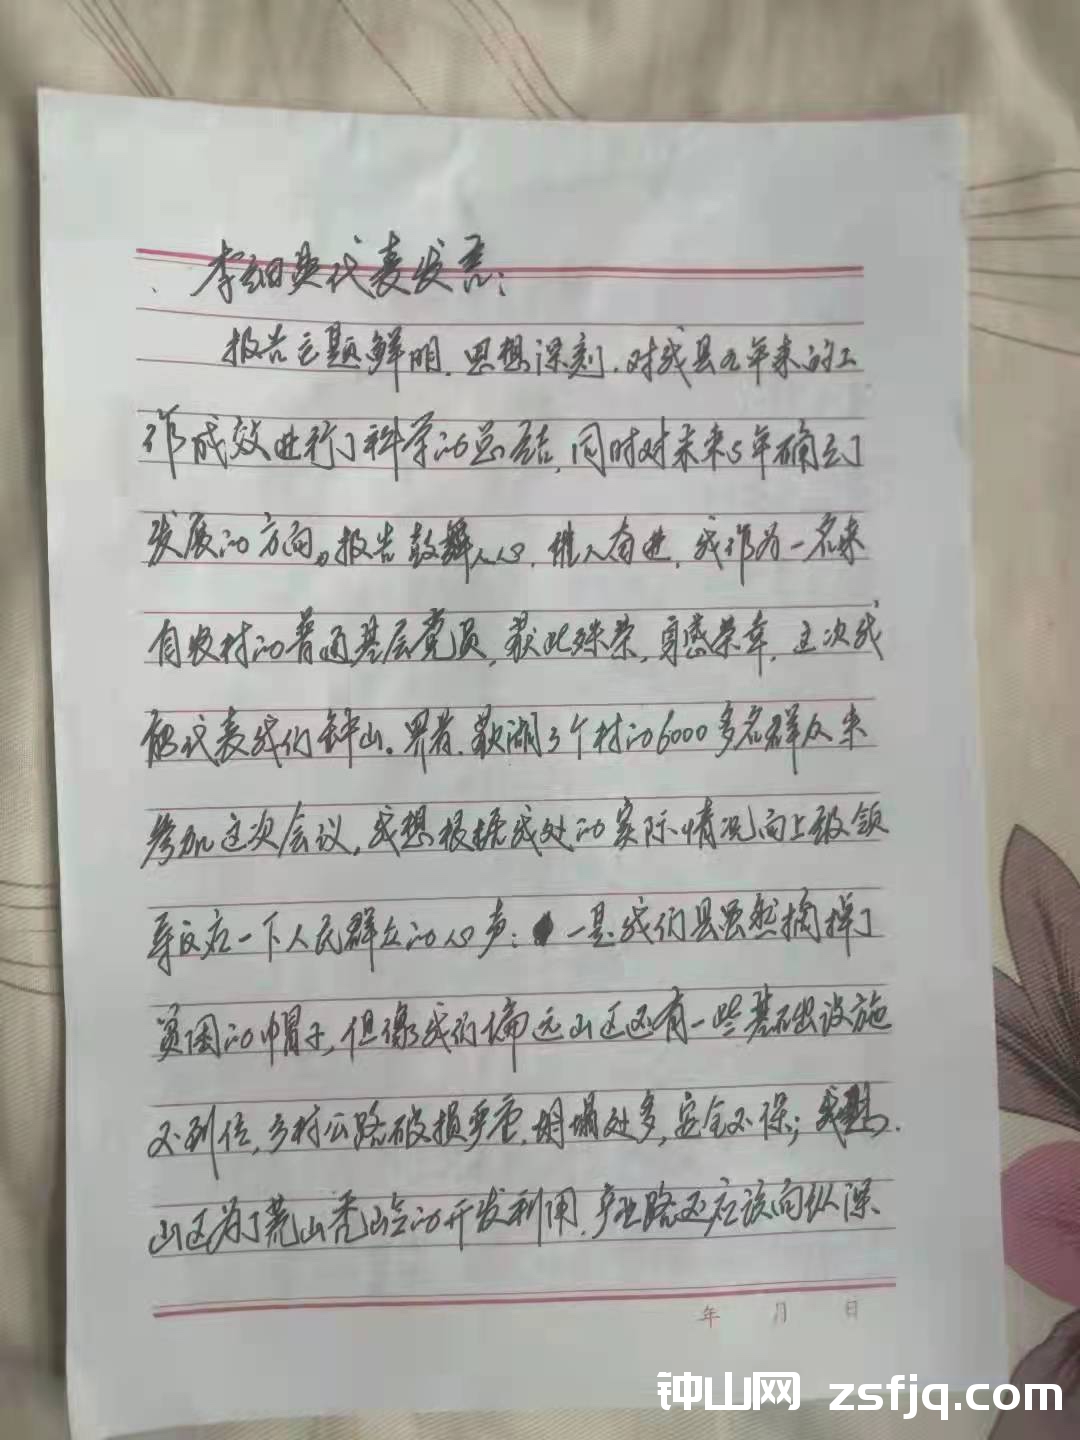 李细典代表发言:
报告主题鲜明.思想深刻.对我县五年来的工
作成效进行了科学的总结,同时对未来5年确立了
发展的方向。报告鼓舞人心,催人奋进,我作为一名来
自农村的普通基层党员,获此殊荣,穿感荣幸,这次我
能代表我们钟山。界首.歌湖3个村的6000多名群众来
参加这次会议,我想根据我处的实际情况向上级领
导反应一下人民群众的心声: 一是我们县虽然摘掉了
贫困的帽子,但像我们偏远山区还有一些基础设施
不到位,乡村公路破损严重,坍塌处多,安全不保;
山区为了荒山秃岭的开发利用,产业路还应该向纵深
年 月 日
钟山网 zsfjq.com